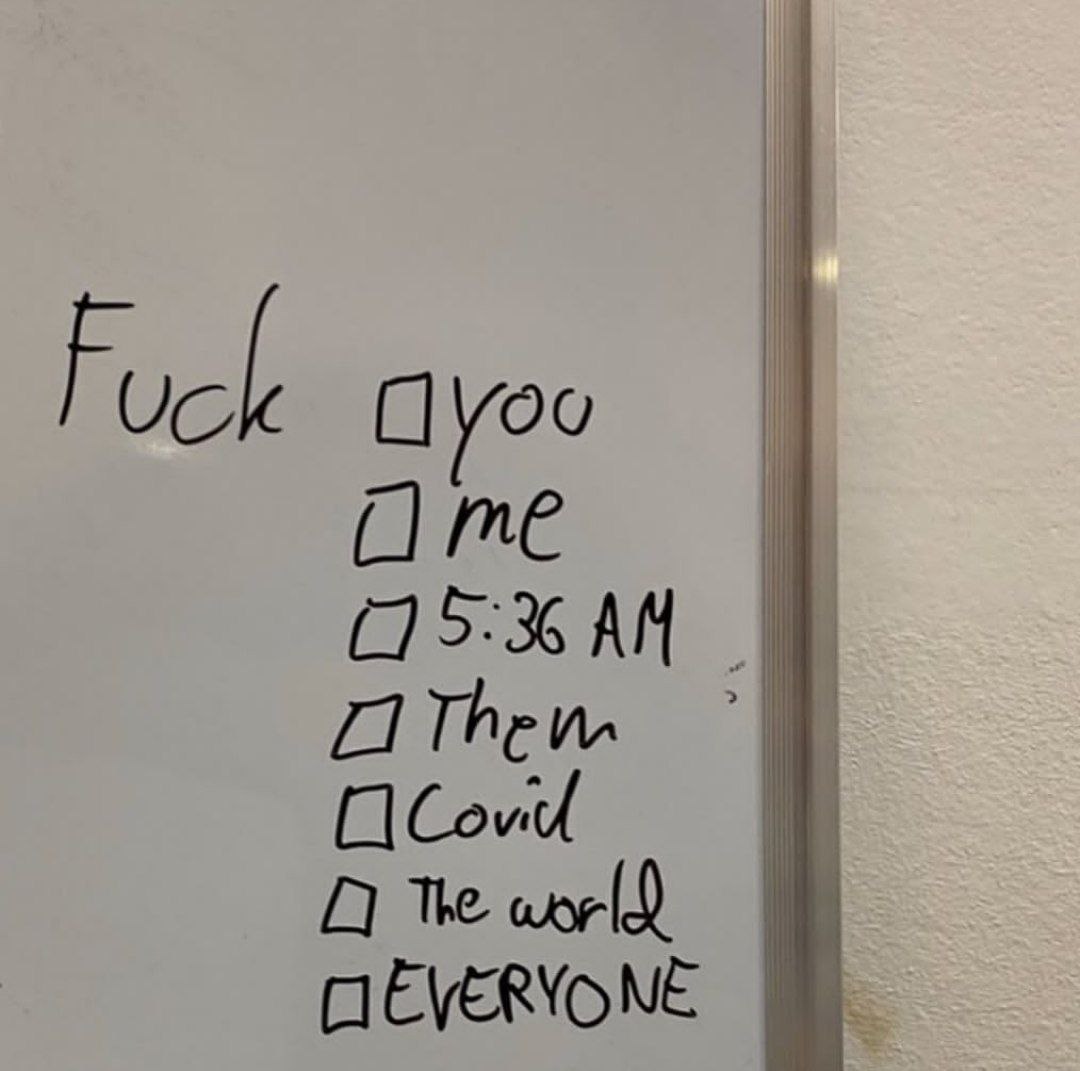 Fuck □ you
□ me
□ 5:36 AM
□ Them
□ Covid
□ The world
□ EVERYONE